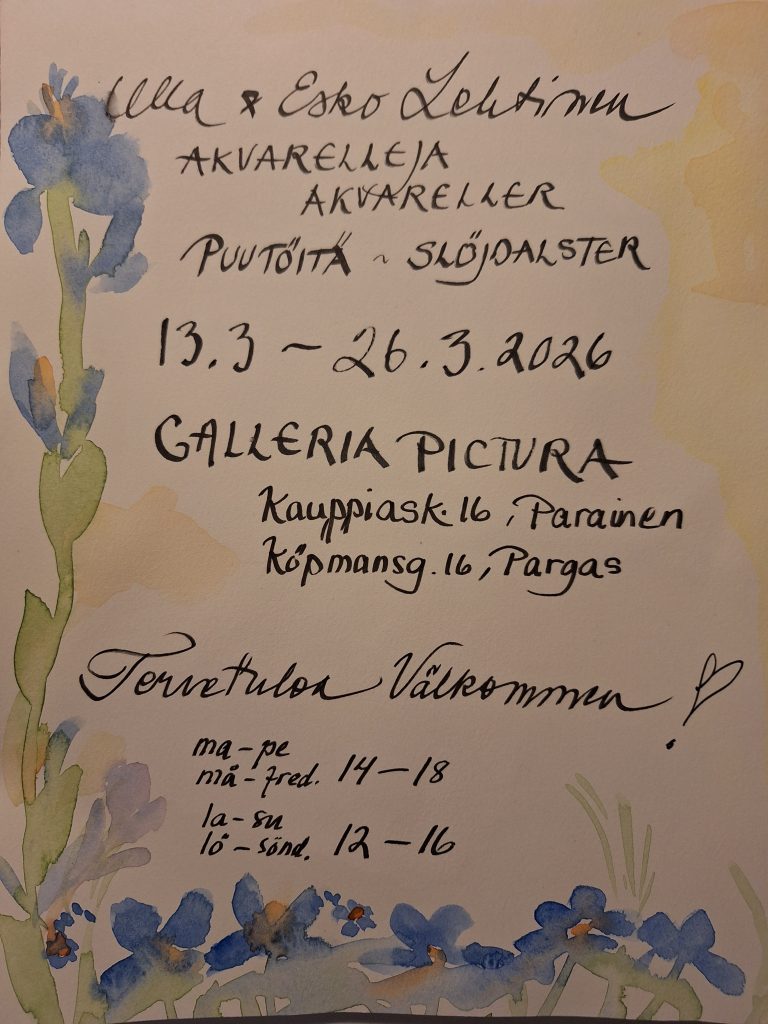 Ulla & Esko Lehtinen
AKVARELLEJA
AKVARELLER
PUUTÖITÄ ~ SLÖJDALSTER
13.3 ~ 26.3.2026
GALLERIA PICTURA
Kauppiask. 16, Parainen
Köpmansg. 16, Pargas
Tervetuloa Välkommen!
ma-pe
må-fred. 14-18
la-su
lö-sönd. 12-16